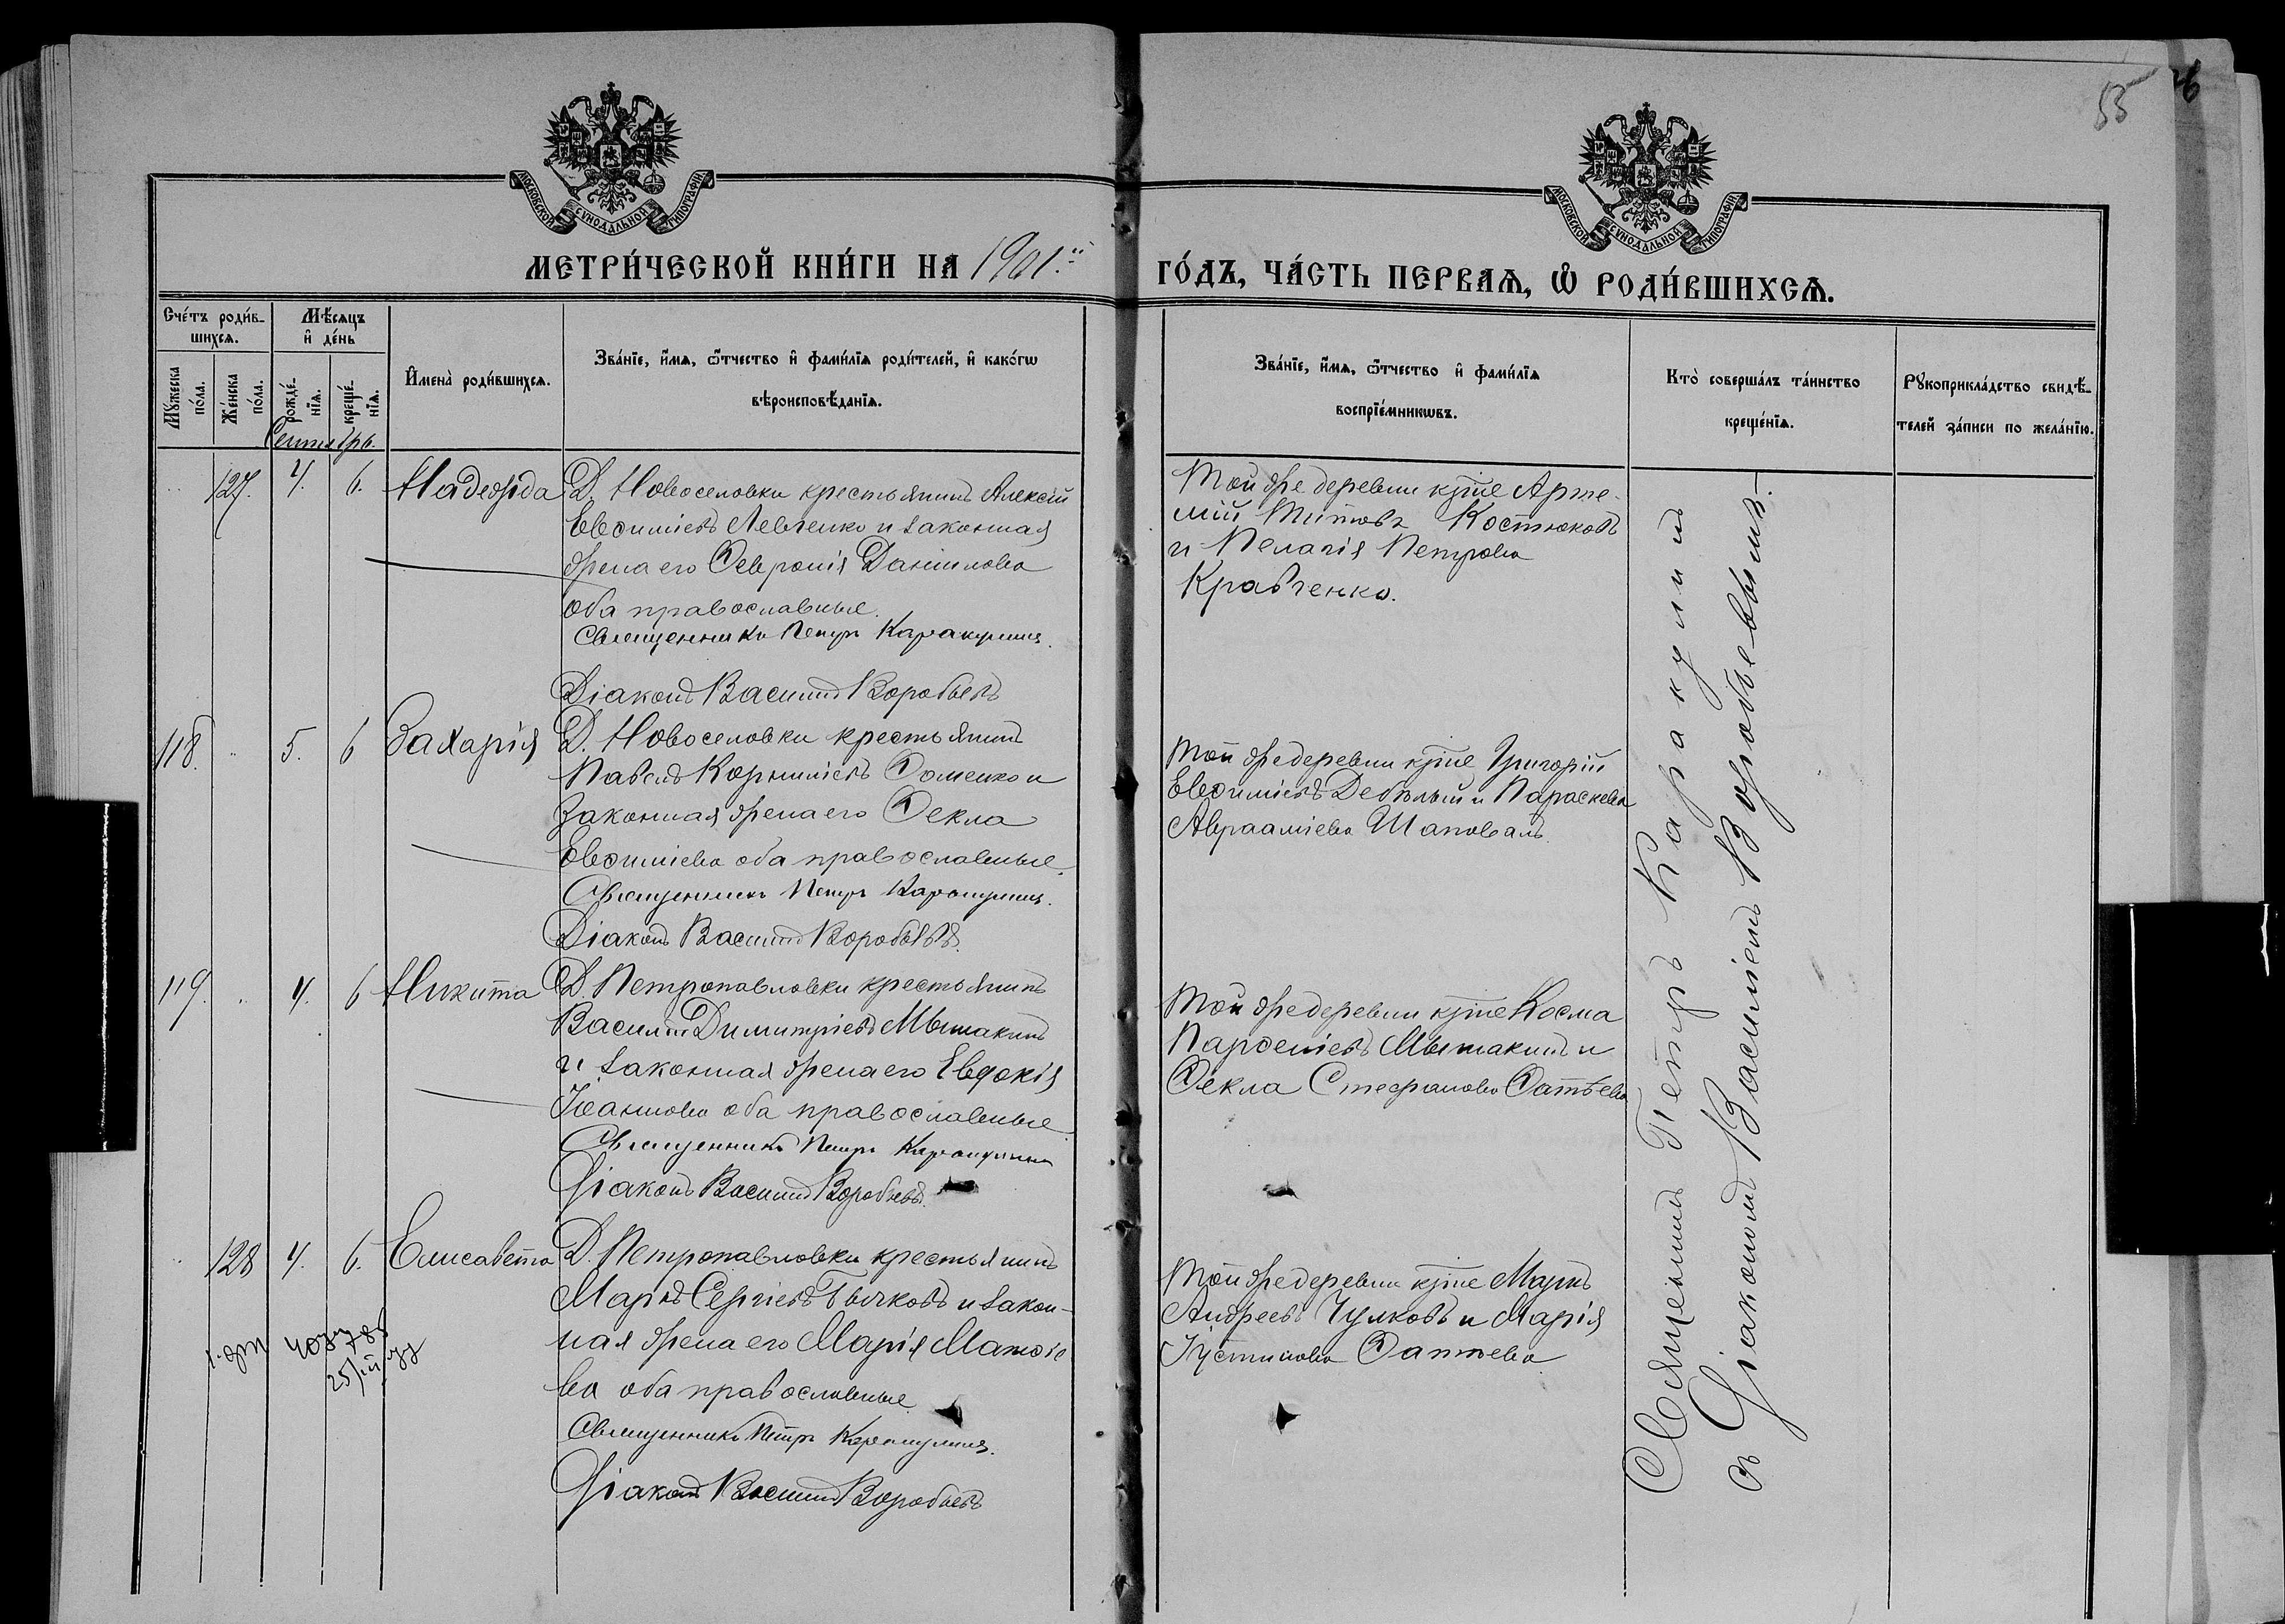 55
МОСКОВСКОЙ СѴНОДАЛЬНОЙ ТИПОГРАФІИ
МОСКОВСКОЙ СѴНОДАЛЬНОЙ ТИПОГРАФІИ
МЕТРИ́ЧЕСКОЙ КНИ́ГИ НА 1901.й
ГО́ДЪ, ЧА́СТЬ ПЕРВАѦ, Ѡ РОДИ́ВШИХСѦ.
Сче́тъ роди́в-
шихсѧ.
Мꙋ́жеска
по́ла.
Же́нска
по́ла.
Мѣ́сѧцъ
и҆ де́нь
рожде́-
нїѧ.
креще́-
нїѧ.
Сентябрь.
И҆мена̀ роди́вшихсѧ.
Зва́нїе, и҆́мѧ, ѻ҆́тчество и҆ фами́лїѧ роди́телей, и҆ како́гѡ
вѣроисповѣ́данїѧ.
Зва́нїе, и҆́мѧ, ѻ҆́тчество и҆ фами́лїѧ
воспрїе́мникѡвъ.
Кто̀ соверша́лъ та́инство
креще́нїѧ.
Рꙋкоприкла́дство свидѣ́-
телей за́писи по жела́нїю.
127. 4. 6. Надежда
Д. Новоселовки крестьянинъ Алексій
Евѳиміевъ Левченко и законная
жена его Февронія Даніилова
оба православные.
Священникъ Петръ Каракулинъ.
Діаконъ Василій Воробьевъ
Той же деревни кр-не Арте-
мій Титовъ Костюковъ
и Пелагія Петрова
Кравченко.
118. 5. 6 Захарія
Д. Новоселовки крестьянинъ
Павелъ Корниліевъ Фоменко и
законная жена его Ѳекла
Евѳиміева оба православные.
Священникъ Петръ Каракулинъ.
Діаконъ Василій Воробьевъ.
Той же деревни кр-не Григорій
Евѳиміевъ Дебѣлый и Параскева
Авраамiева Шаповалъ
119. 4. 6 Никита
Д. Петропавловки крестьянинъ
Василій Димитріевъ Мышакинъ
и законная жена его Евдокія
Іоаннова оба православные.
Священникъ Петръ Каракулинъ
Діаконъ Василій Воробьевъ.
Той же деревни кр-не Косма
Парѳеніевъ Мышакинъ и
Ѳекла Стефанова Фатѣева
128 4. 6. Елисавета
Д. Петропавловки крестьянинъ
Маркъ Сергіевъ Бычковъ и закон-
ная жена его Марія Матѳіе
ва оба православные
Священникъ Петръ Каракулинъ.
Діаконъ Василій Воробьевъ
Той же деревни кр-не Маркъ
Андреевъ Чулковъ и Марія
Іустинова Фатѣева
Священникъ Петръ Каракулинъ
съ Діакономъ Василіемъ Воробьевымъ.